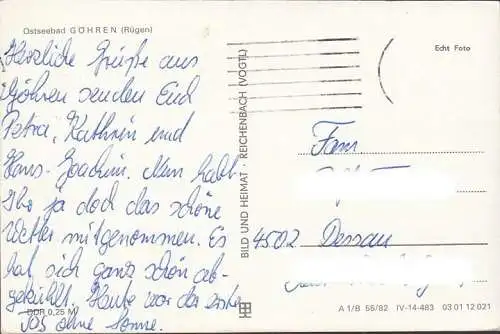 Ostseebad GÖHREN (Rügen)
Herzliche Grüße aus
Göhren senden Euch
Petra, Kathrin und
Hans-Joachim. Nun habt
Ihr ja doch das schöne
Wetter mitgenommen. Es
hat sich ganz schön ab-
gekühlt. Heute war der erste
Tag ohne Sonne.
DDR 0,25 M
BILD UND HEIMAT · REICHENBACH (VOGTL)
Echt Foto
Fam.
4502 Dessau
A 1/B 56/82 IV-14-483 03 01 12 021